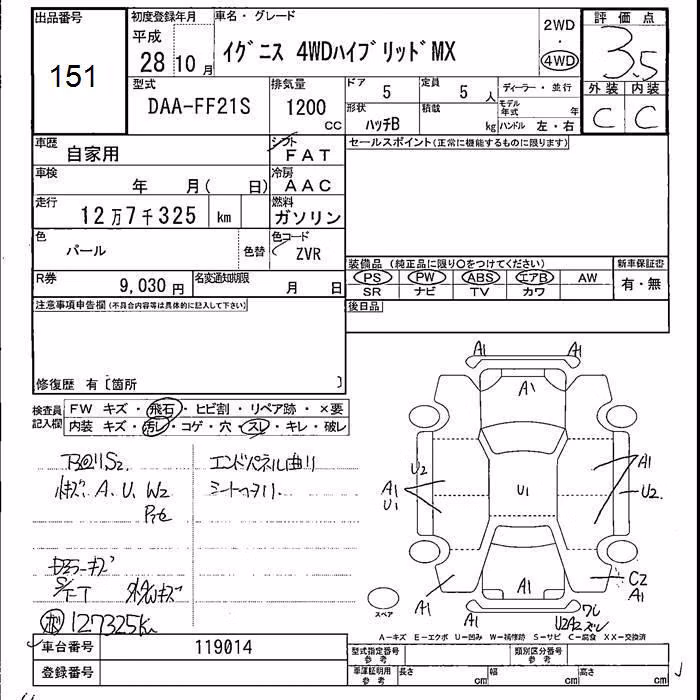 出品番号
151
初度登録年月
平成
28年 10月
車名・グレード
イグニス 4WDハイブリッドMX
2WD
・
4WD
評価点
3.5
外装 内装
C C
型式
DAA-FF21S
排気量
1200
CC
ドア
5
定員
5人
形状
ハッチB
積載
kg
ディーラー・並行
モデル年式 年
ハンドル 左・右
車歴
自家用
シフト
FAT
車検
年 月( 日)
冷房
AAC
走行
12万7千325 km
燃料
ガソリン
色
パール
色替
色コード
ZVR
R券
9,030円
名変通知期限
月 日
セールスポイント(正常に機能するものに限ります)
装備品 (純正品に限り○をつけてください)
PS PW ABS エアB AW
SR ナビ TV カワ
新車保証書
有・無
後日品
注意事項申告欄(不具合内容等は具体的に記入して下さい)
修復歴 有〔箇所 〕
検査員記入欄
FW キズ・飛石・ヒビ割・リペア跡・×要
内装 キズ・汚レ・コゲ・穴・スレ・キレ・破レ
エンドパネル曲リ
A.U.W2
127325Km
A1 A1
A1
U2
A1
U1
U1
A1
U2
A1
A1
C2
A1
A1
U2A2
スペア
A-キズ E-エクボ U-凹み W-補修跡 S-サビ C-腐食 XX-交換済
車台番号
119014
登録番号
型式指定番号
参考
類別区分番号
参考
車庫証明用
参考
長さ cm
幅 cm
高さ cm